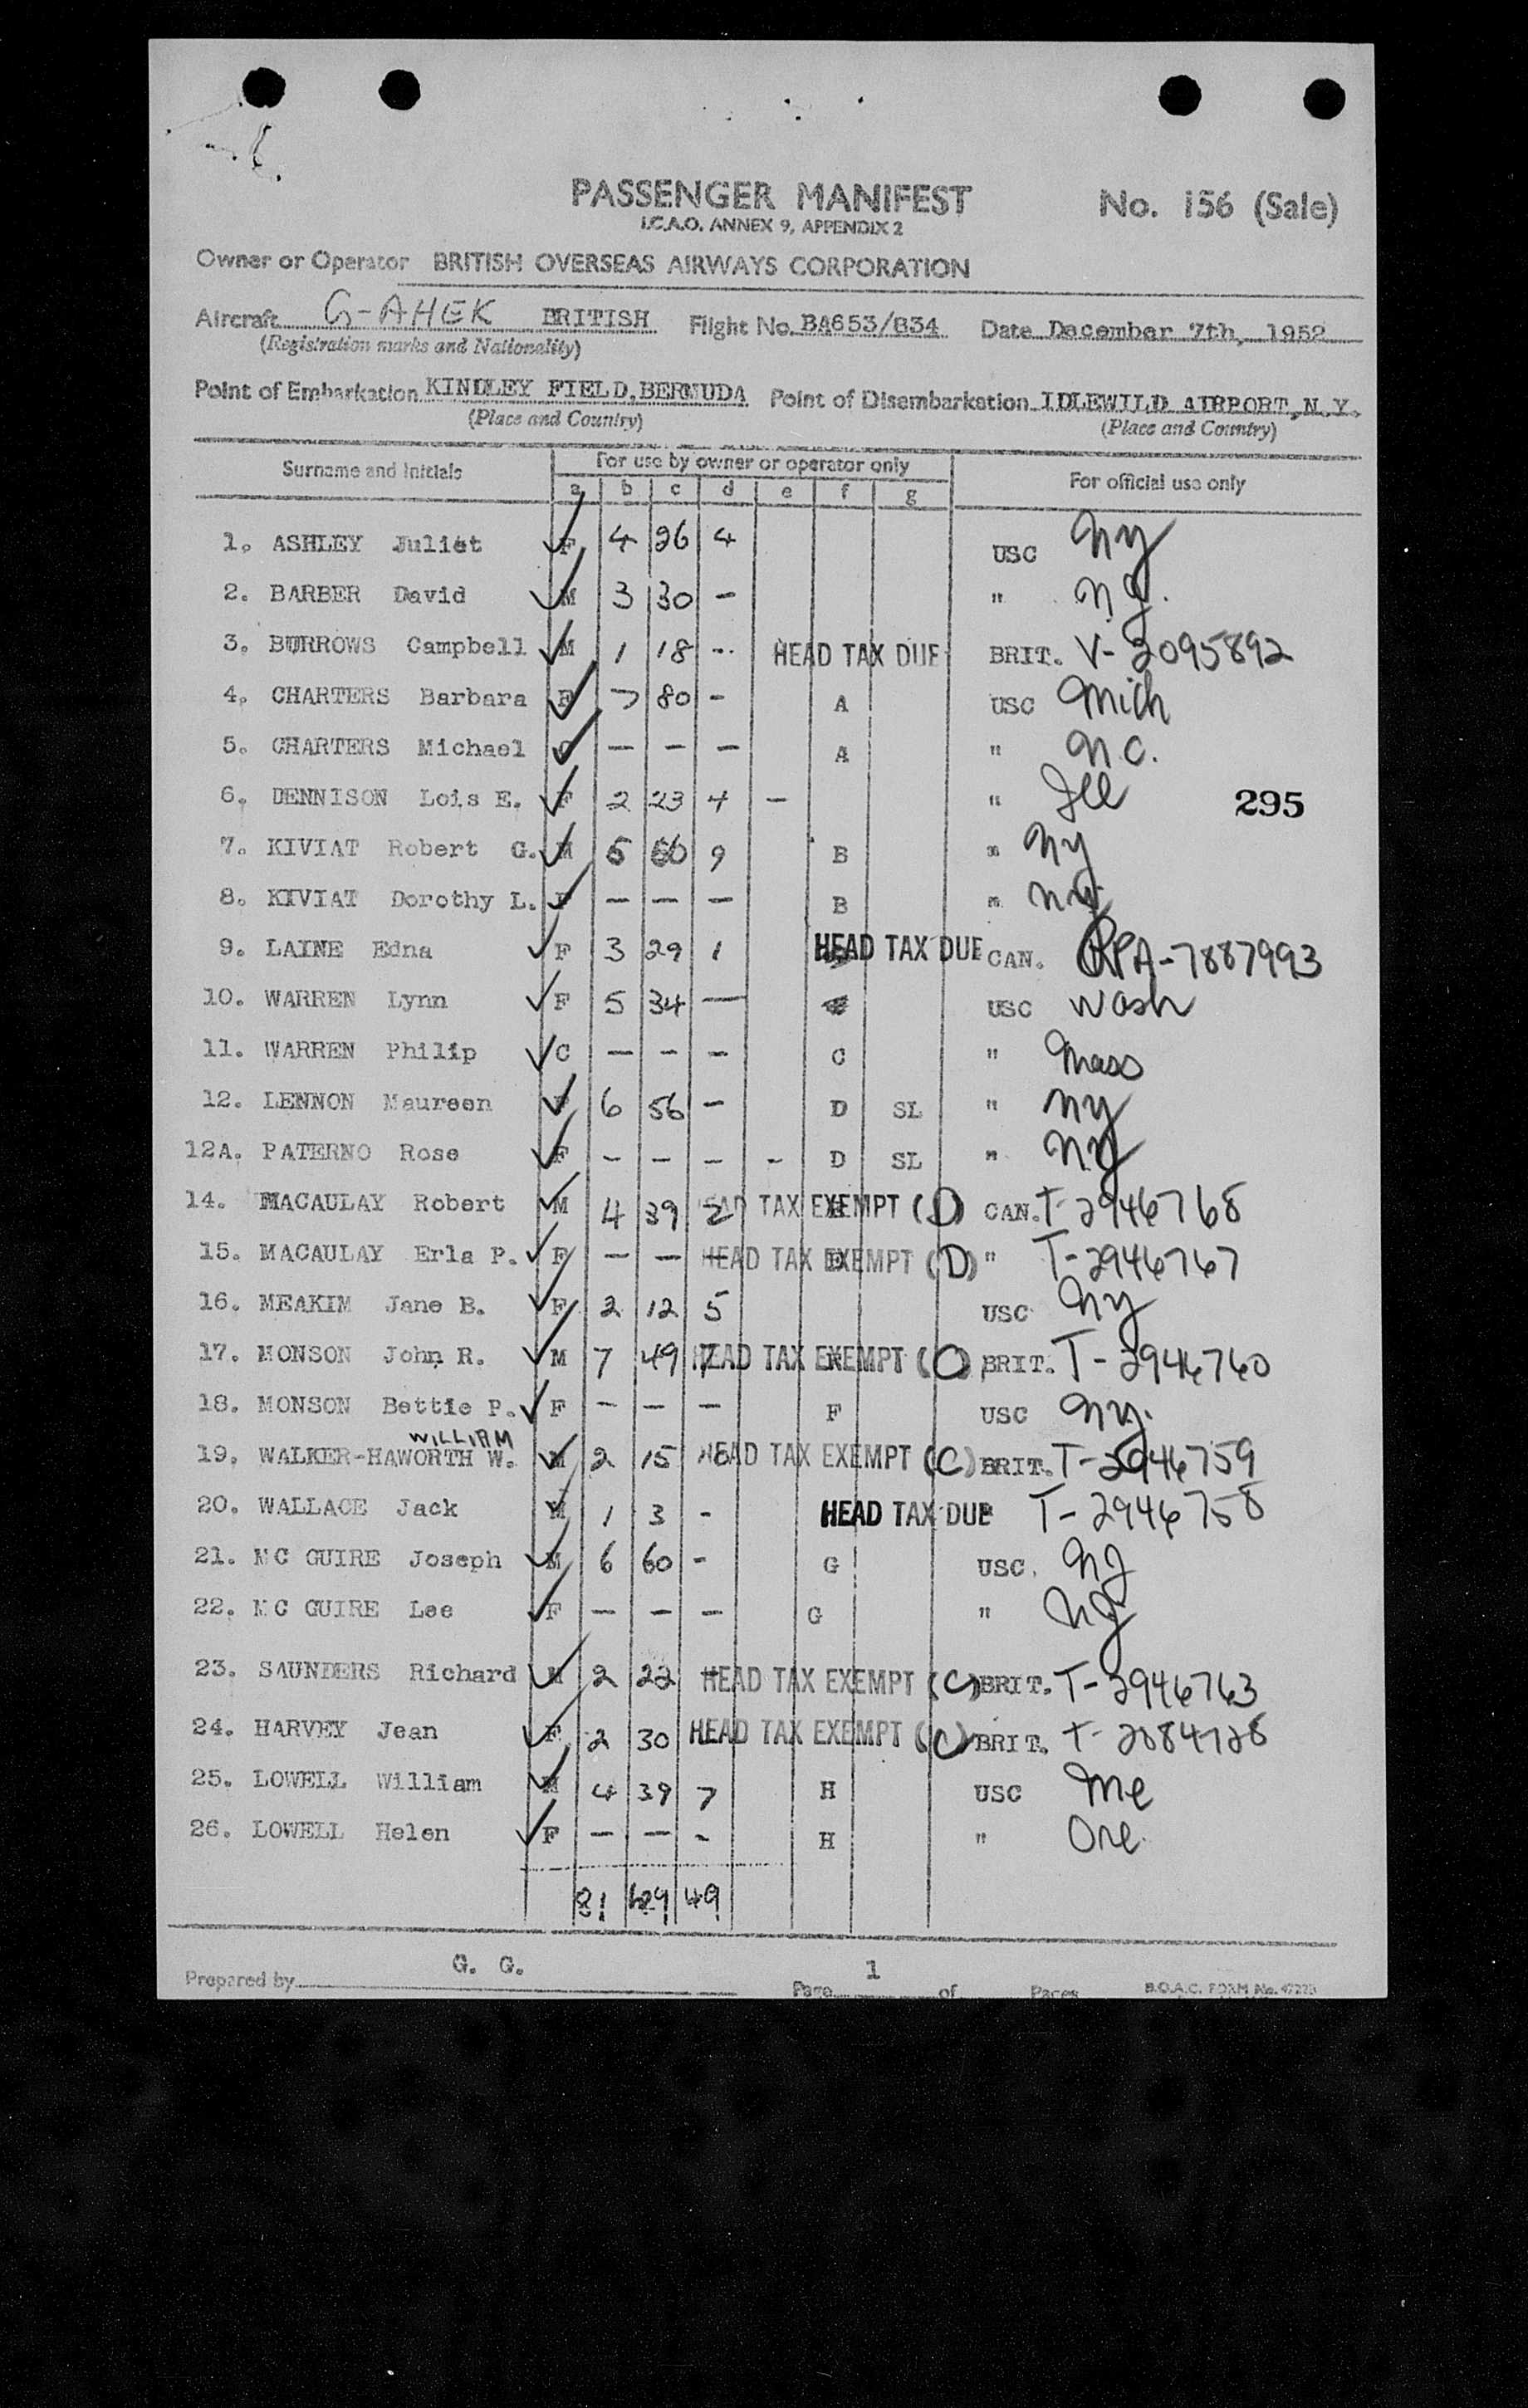 PASSENGER MANIFEST No. 156 (Sale)
I.C.A.O. ANNEX 9, APPENDIX 2
Owner or Operator BRITISH OVERSEAS AIRWAYS CORPORATION
Aircraft G-AHEK BRITISH Flight No. BA653/834 Date December 7th, 1952
(Registration marks and Nationality)
Point of Embarkation KINDLEY FIELD, BERMUDA Point of Disembarkation IDLEWILD AIRPORT, N.Y.
(Place and Country) (Place and Country)
Surname and Initials For use by owner or operator only For official use only
a b c d e f g
1. ASHLEY Juliet F 4 26 4 USC NY
2. BARBER David M 3 30 - " NJ.
3. BURROWS Campbell M 1 18 - HEAD TAX DUE BRIT. V-2095892
4. CHARTERS Barbara F 7 80 - A USC Mich
5. CHARTERS Michael C - - - A " N.C.
6. DENNISON Lois E. F 2 23 4 - " Ill 295
7. KIVIAT Robert G. M 5 50 9 B " NY
8. KIVIAT Dorothy L. F - - - B " NY
9. LAINE Edna F 3 29 1 HEAD TAX DUE CAN. RPA-7887993
10. WARREN Lynn F 5 34 - USC Wash
11. WARREN Philip C - - - C " Mass
12. LENNON Maureen F 6 56 - D SL " NY
12A. PATERNO Rose F - - - - D SL " NY
14. MACAULAY Robert M 4 39 2 HEAD TAX EXEMPT (D) CAN. T-2946768
15. MACAULAY Erla P. F - - - HEAD TAX EXEMPT (D) " T-2946767
16. MEAKIM Jane B. F 2 12 5 USC NY
17. MONSON John R. M 7 49 7 HEAD TAX EXEMPT (O) BRIT. T-2946760
18. MONSON Bettie P. F - - - F USC NY.
WILLIAM
19. WALKER-HAWORTH W. M 2 15 HEAD TAX EXEMPT (C) BRIT. T-2946759
20. WALLACE Jack M 1 3 - HEAD TAX DUE T-2946758
21. MC GUIRE Joseph M 6 60 - G USC. NJ
22. MC GUIRE Lee F - - - G " NJ
23. SAUNDERS Richard M 2 22 - HEAD TAX EXEMPT (C) BRIT. T-2946763
24. HARVEY Jean F 2 30 HEAD TAX EXEMPT (C) BRIT. T-2084728
25. LOWELL William M 4 39 7 H USC Me
26. LOWELL Helen F - - - H " Ore.
81 629 49
G. G. 1
Prepared by Page of Pages B.O.A.C. FORM No.